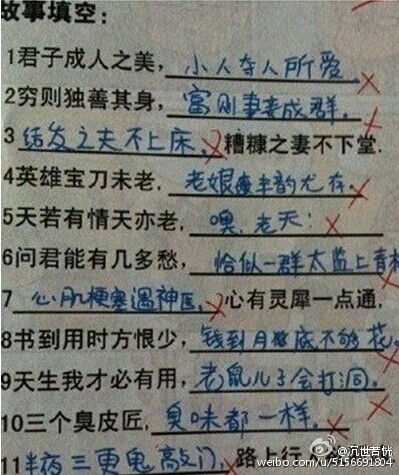 故事填空:
1君子成人之美,小人夺人所爱。
2穷则独善其身,富则妻妾成群。
3结发之夫不上床,糟糠之妻不下堂.
4英雄宝刀未老,老娘丰韵尤存。
5天若有情天亦老,噢,老天!
6问君能有几多愁,恰似一群太监上青楼
7心肌梗塞遇神医,心有灵犀一点通,
8书到用时方恨少,钱到月底不够花。
9天生我才必有用,老鼠儿子会打洞。
10三个臭皮匠,臭味都一样。
11半夜三更鬼敲门,路上行人
@沉世苦忧
weibo.com/u/5156691804